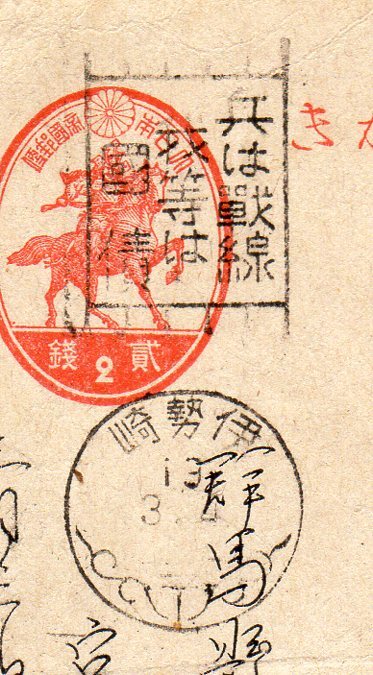 き
兵は戰線
我等は
國債
大日本帝國郵便
貳2錢
伊勢崎
13
群馬縣